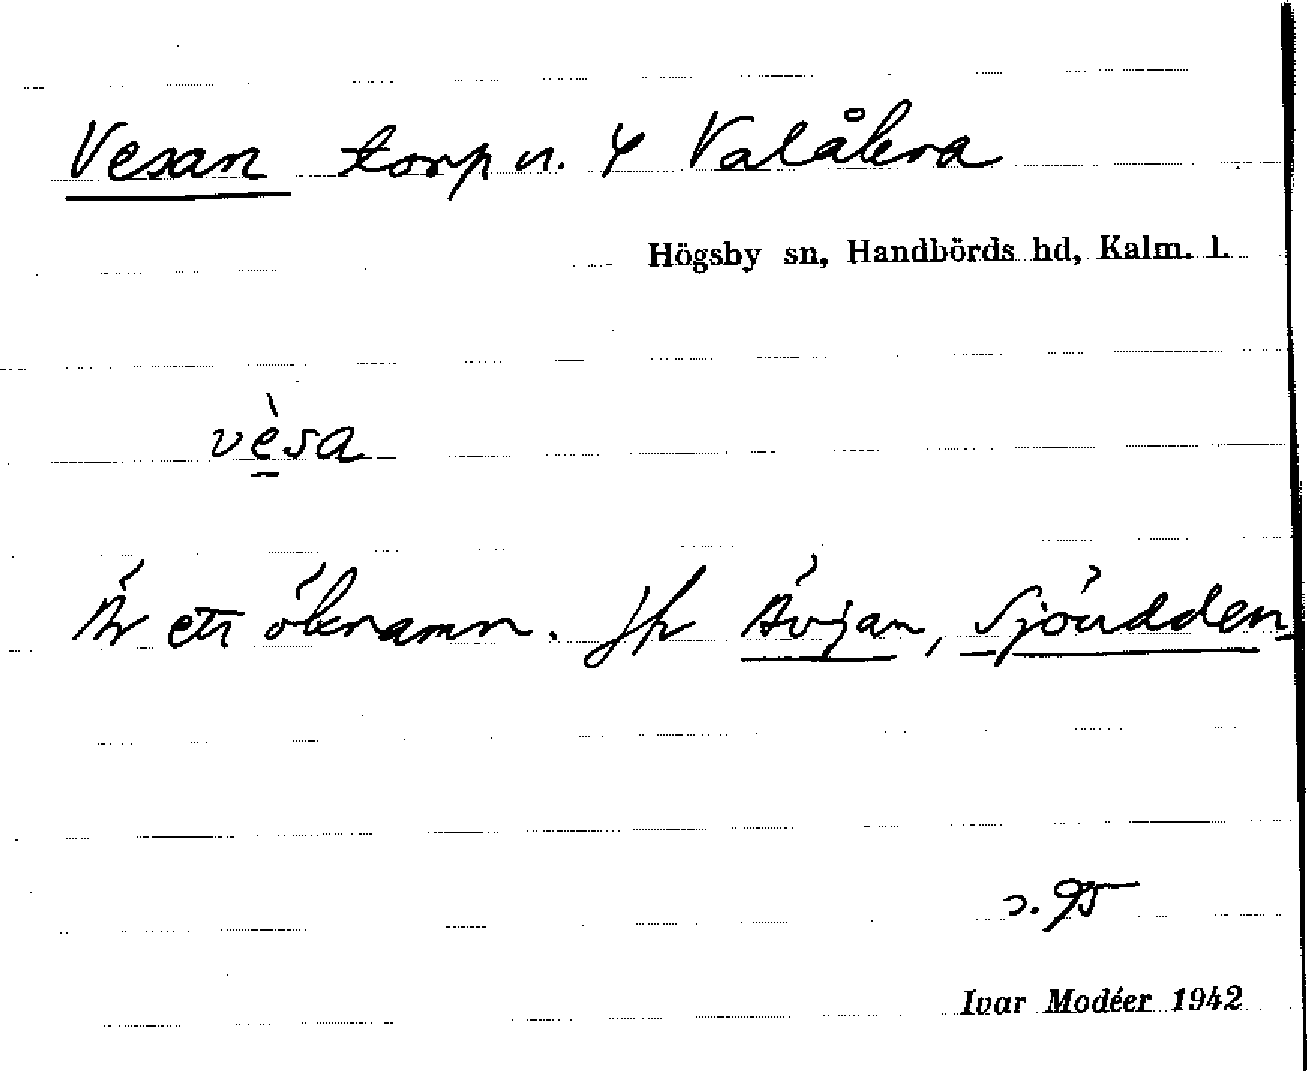 Vesan torp u. 4 Valåkra
Högsby sn, Handbörds hd, Kalm. l.
vèsa
Är ett öknamn. Jfr Ävjan, Sjöudden
s. 95
Ivar Modéer 1942